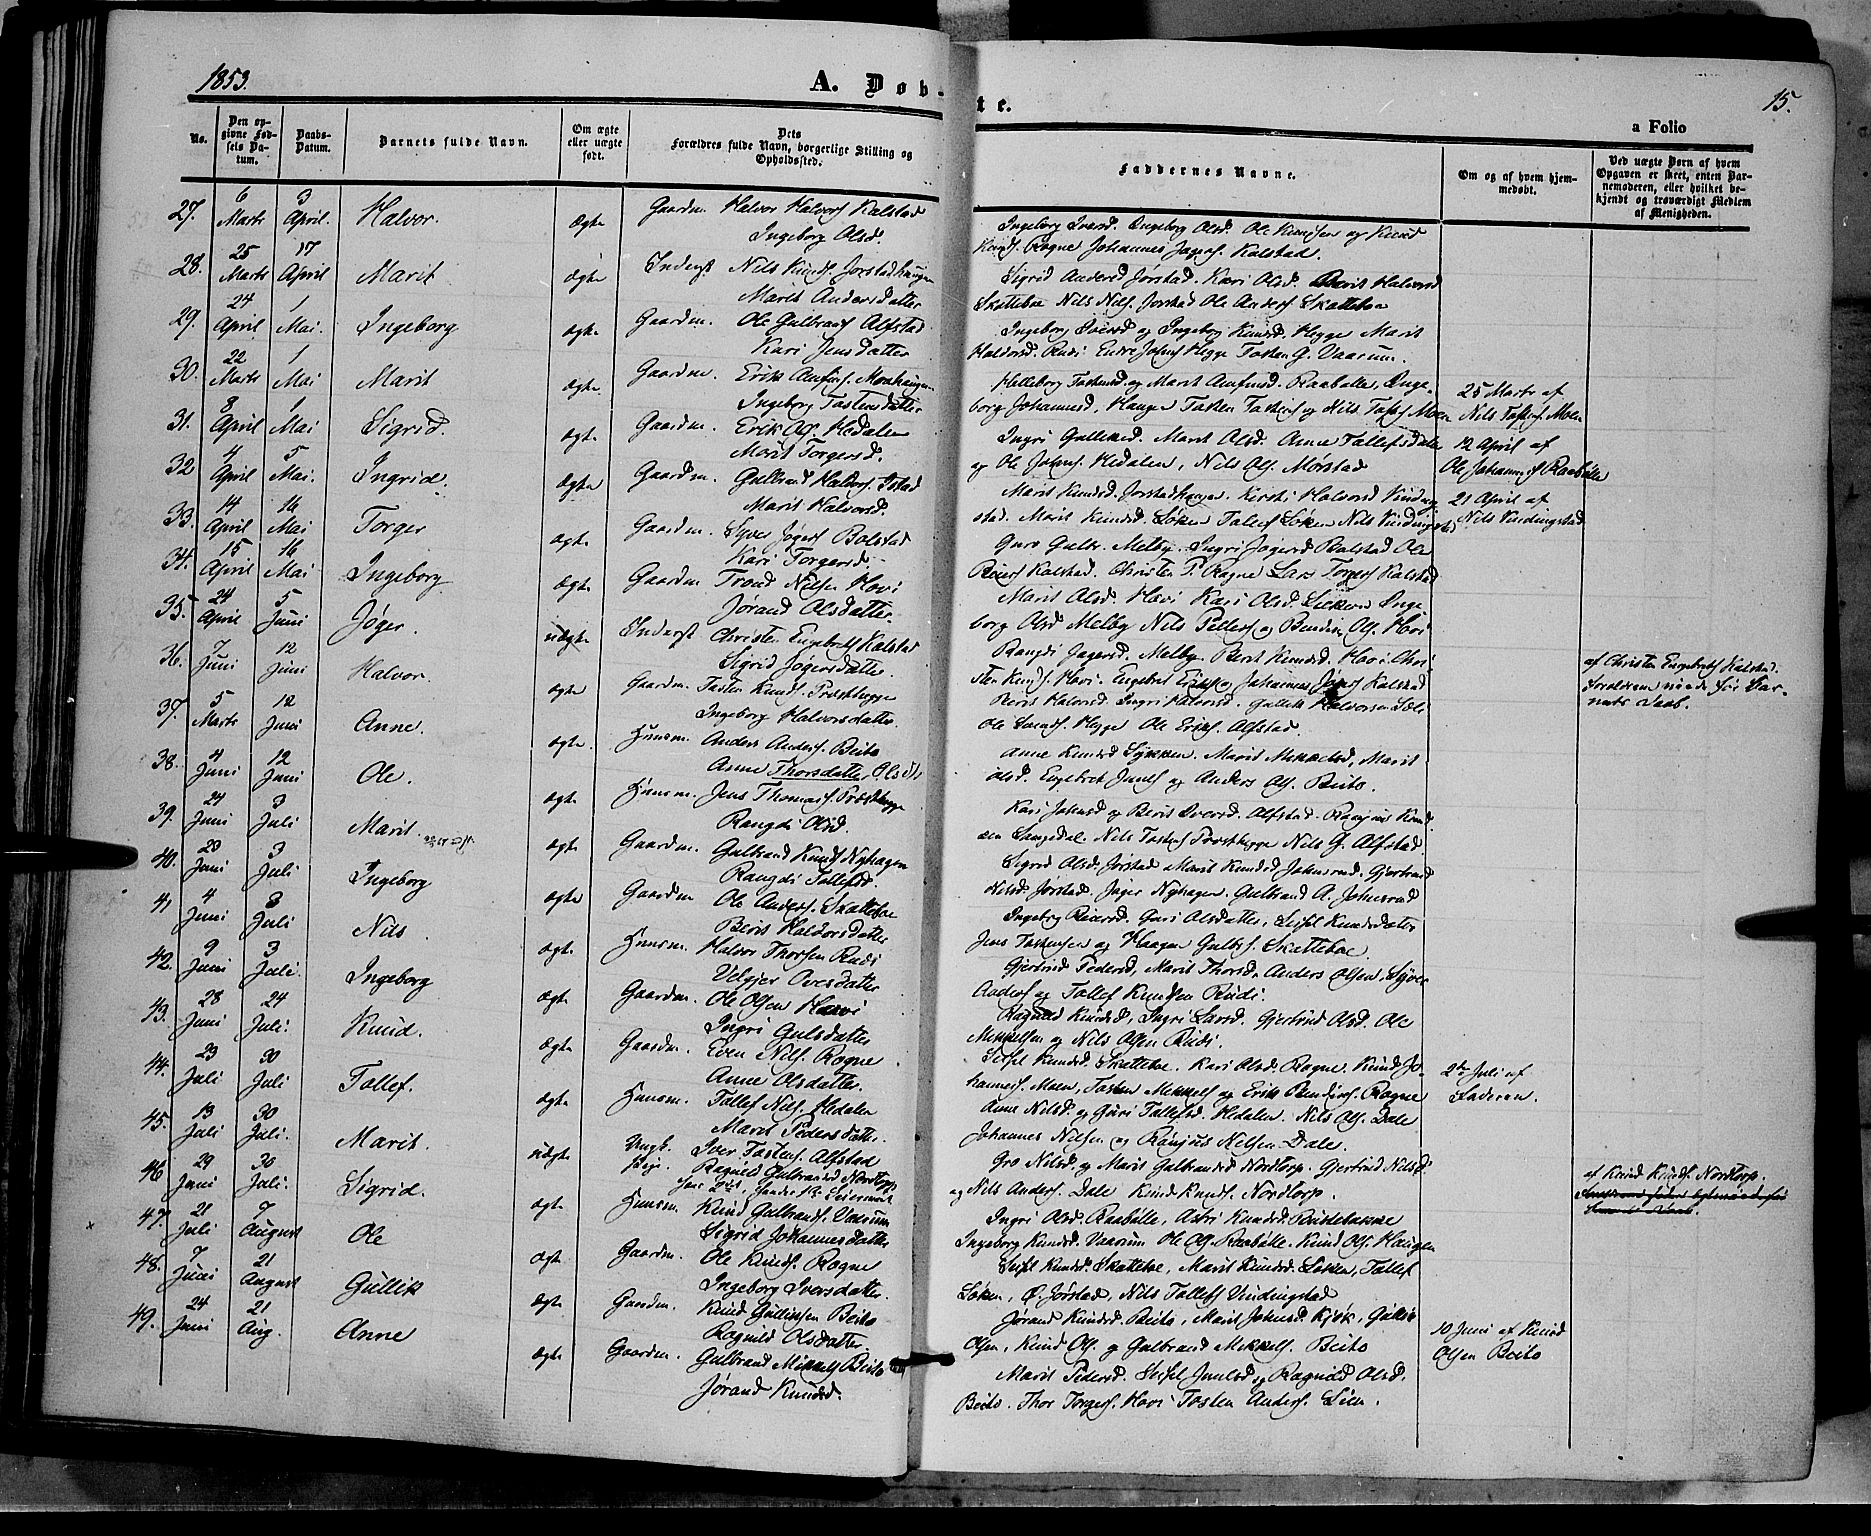 1853.
A. Døb-
te.
15.
a Folio
No.
Den op-
givne Fød-
sels Da-
tum.
Daabs-
Datum.
Barnets fulde Navn.
Om ægte
eller uægte
født.
Dets
Forældres fulde Navn, borgerlige Stilling og
Opholdssted.
Faddernes Navne.
Om og af hvem hjem-
medøbt.
Ved uægte Børn af hvem
Opgaven er skeet, enten Bar-
nemoderen, eller hvilket be-
kjendt og troværdigt Medlem
af Menigheden.
27. 6 Marts 3 April. Halvor. ægte Gaardm. Halvor Halvors. Kalstad
Ingeborg Olsd.
Ingeborg Iversd. Ingeborg Olsd. Ole Knudsen og Knud
Knuds. Rogne Johannes Jøgers. Kalstad.
28. 25 Marts 17 April Marit ægte Inderst Nils Knuds. Jørstadhaugen
Marit Andersdatter
Sigrid Andersd. Jørstad. Kari Olsd. Berit Halvorsd.
Skattebøe Nils Nils. Jørstad Ole Anders. Skattebøe
29. 24 April 1 Mai. Ingeborg ægte Gaardm. Ole Gulbrands. Alfstad
Kari Jensdatter
Ingeborg Iversd. og Ingeborg Knudsd. Hegge Marit
Halvorsd. Rudi Endre Johns. Hegge Tosten G. Vaarum.
30. 22 Marts 1 Mai Marit ægte Gaardm. Erik Arnfins. Moehaugen
Ingeborg Tostensdatter
Helleborg Tostensd. og Marit Arnfinsd. Raabølle, Inge-
borg Johannesd. Haugen Tosten Tostens. og Nils Tostens. Moen
25 Marts af
Nils Tostens. Moen
31. 8 April 1 Mai Sigrid. ægte Gaardm. Erik Ols. Hedalen
Marit Torgersd.
Ingri Gulliksd. Marit Olsd. Anne Tollefsdatter
og Ole Johns. Hedalen, Nils Ols. Mørstad
12 April af
Ole Johanns. Raabølle
32. 4 April 5 Mai. Ingrid. ægte Gaardm. Gulbrand Halvors. Ystad
Marit Halvorsd.
Marit Knudsd. Jørstadhaugen. Kirsti Halvorsd. Vinding-
stad. Marit Knudsd. Løken Tollef Løken Nils Vindingstad
21 April af
Nils Vindingstad
33. 14 April 16 Mai Torger ægte Gaardm. Syver Jøgers. Bolstad
Kari Torgersd.
Guro Gulbr. Melby. Ingri Jøgersd. Kalstad Ole
Reiers. Kalstad. Christen P. Rogne Lars Torgers. Kalstad
34. 15 April 16 Mai Ingeborg. ægte Gaardm Trond Nilsen Hovi
Jørand Olsdatter.
Marit Olsd. Hovi Kari Olsd. Inge-
borg Olsd. Melby Nils Peders. og Bendix Ols. Hovi
35. 24 April 5 Juni Jøger. uægte Inderst Christen Engebrets. Kalstad
Sigrid Jøgersdatter.
Rangdi Jøgersd. Melby. Berit Knudsd. Hovi. Chri-
sten Knuds. Hovi. Engebret Eriks. og Johannes Jøgers. Kalstad
af Christen Engebrets. Kalstad.
Forældrene viede før Bar-
nets Daab.
36. 7 Juni 12 Juni Halvor. ægte Gaardm. Tosten Knuds. Præsthegge
Ingeborg Halvorsdatter.
Berit Halvorsd. Ingri Halvorsd. Gullik Halvorsen
Ole Svends. Hegge Ole Eriks. Alfstad.
37. 5 Marts 12 Juni Anne. ægte. Huusm. Anders Anders. Beito
Anne Thorsdatter Olsd.
Anne Knudsd. Løkken. Marit Mikkelsd. Marit
Olsd. Engebret Juuls. og Anders Ols. Beito.
38. 4 Juni 12 Juni Ole. ægte Huusm. Jens Thomas. Præsthegge
Rangdi Olsd.
Kari Johnsd. og Berit Iversd. Alfstad. Rangnus Knud-
sen Langedal. Nils Tostens. Præsthegge Nils G. Alfstad.
39. 24 Juni 3 Juli Marit. ægte Gaardm. Gulbrand Knuds. Nyhagen
Rangdi Tollefsd.
Sigrid Olsd. Jørstad Marit Knudsd. Johnsrud. Gjertrud
Nilsd. Jørstad. Jøger Nyhagen. Gulbrand A. Johnsrud
40. 23 Juni 3 Juli Ingeborg ægte Gaardm Ole Anders. Skattebøe
Berit Halvorsdatter
Ingebrg Reiersd. Guri Olsdatter, Sissel Knudsdatter
Jens Tostensen og Haagen Gulbs. Skattebøe.
41 4 Juni 3 Juli Nils. ægte Huusm. Halvor Thorsen Rudi
Velgjer Ovesdatter
Gjertrud Pedersd, Marit Thorsd. Anders Olsen Syver
Anders. og Tollef Knudsen Rudi.
42. 9 Juni 3 Juli. Ingeborg ægte Gaardm. Ole Olsen Hovi
Ingri Gulsdatter
Ragnild Knudsd, Ingri Larsd. Gjertrud Olsd. Ole
Mikkelsen og Nils Olsen Rudi.
43. 28 Juni 24 Juli. Knud. ægte Gaardm. Even Nils. Rogne
Anne Olsdatter.
Sissel Knudsd. Skattebøe. Kari Olsd. Rogne. Knud Jo-
hannes. Moen, Tosten Mikkels. og Erik Bendixs. Rogne
2den Juli af
Faderen.
44. 23 Juli 30 Juli Tollef. ægte Huusm. Tollef Nils. Hedalen
Marit Pedersdatter.
Anne Nilsd. og Guri Tollefsd. Hedalen. Nils Ols. Dale
Johannes Nilsen og Rangnus Nilsen Dale.
45. 13 Juli 30 Juli. Marit. uægte Ungk. Iver Tostens. Alfstad
Pige. Ragnild Gulbrandsd Nordtorp
Gro Nilsd. og Marit Gulbrandsd. Nordtorp. Gjertrud Nilsd.
og Nils Anders. Dale Knud Knuds. Nordtorp.
af Knud Knuds. Nordtorp.
46 29 Juni 30 Juli. Sigrid. ægte Huusm. Knud Gulbrands. Vaarum
Sigrid Johannesdatter
Ingri Olsd. Raabølle, Astri Knudsd. Rustebakke
Ingeborg Knudsd. Vaarum Ole Ols. Raabølle. Knud Ols. Haugen
47. 21 Juli 7 August Ole ægte Gaardm. Ole Knuds. Rogne
Ingeborg Iversdatter.
Sissel Knudsd. Skattebøe, Marit Knudsd. Løken, Tollef
Løken, O. Jørstad, Nils Tollefs. Vindingstad
48. 7 Juni 21 August Gullik ægte Gaardm. Knud Gulliksen Beito
Ragnild Olsdatter.
Jørand Knudsd. Beito, Marit Johnsd. Kjøk, Gullik
Olsen, Knud Ols. og Gulbrand Mikkels. Beito
10 Juni af Knud
Olsen Beito
49. 24 Juni 21 Aug. Anne ægte Gaardm. Gulbrand Mikkels. Beito
Jørand Knudsd.
Marit Pedersd. Sissel Juulsd. og Ragnild Olsd.
Beito. Thor Torgers. Hovi Tosten Anders. Lien.